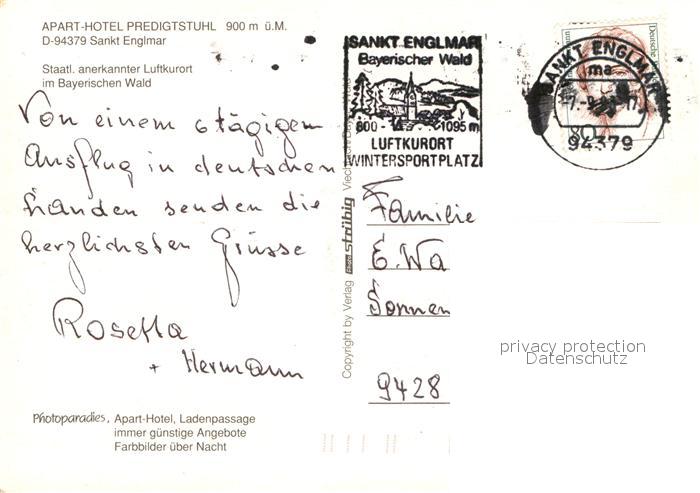 APART-HOTEL PREDIGTSTUHL 900 m ü.M.
D-94379 Sankt Englmar
Staatl. anerkannter Luftkurort
im Bayerischen Wald
Von einem 6 tägigem
Ausflug in deutschen
Landen senden die
herzlichsten Grüsse
Rosetta
+ Hermann
Photoparadies, Apart-Hotel, Ladenpassage
immer günstige Angebote
Farbbilder über Nacht
Copyright by Verlag Strübig
SANKT ENGLMAR
Bayerischer Wald
800 - 1095 m
LUFTKURORT
WINTERSPORTPLATZ
SANKT ENGLMAR
ma
94379
Deutsche
Familie
E. Wa
Sonnen
9428
privacy protection
Datenschutz